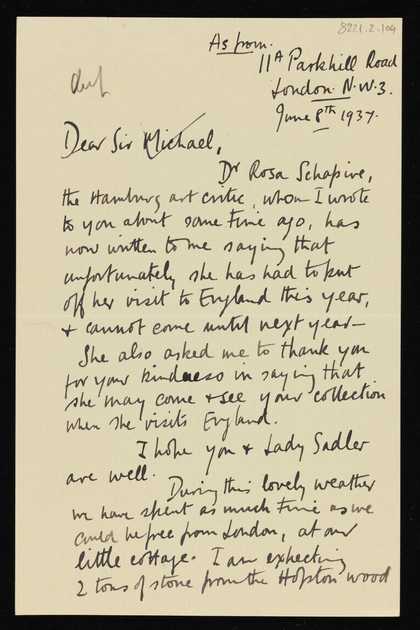 8221.2.104
As from.
11A Parkhill Road
London. N.W.3.
June 8th 1937.
Dear Sir Michael,
Dr Rosa Schapire,
the Hamburg art critic, whom I wrote
to you about some time ago, has
now written to me saying that
unfortunately she has had to put
off her visit to England this year,
& cannot come until next year –
She also asked me to thank you
for your kindness in saying that
she may come & see your collection
when she visits England.
I hope you & Lady Sadler
are well.
During this lovely weather
we have spent as much time as we
could be free from London, at our
little cottage. I am expecting
2 tons of stone from the Hopton wood